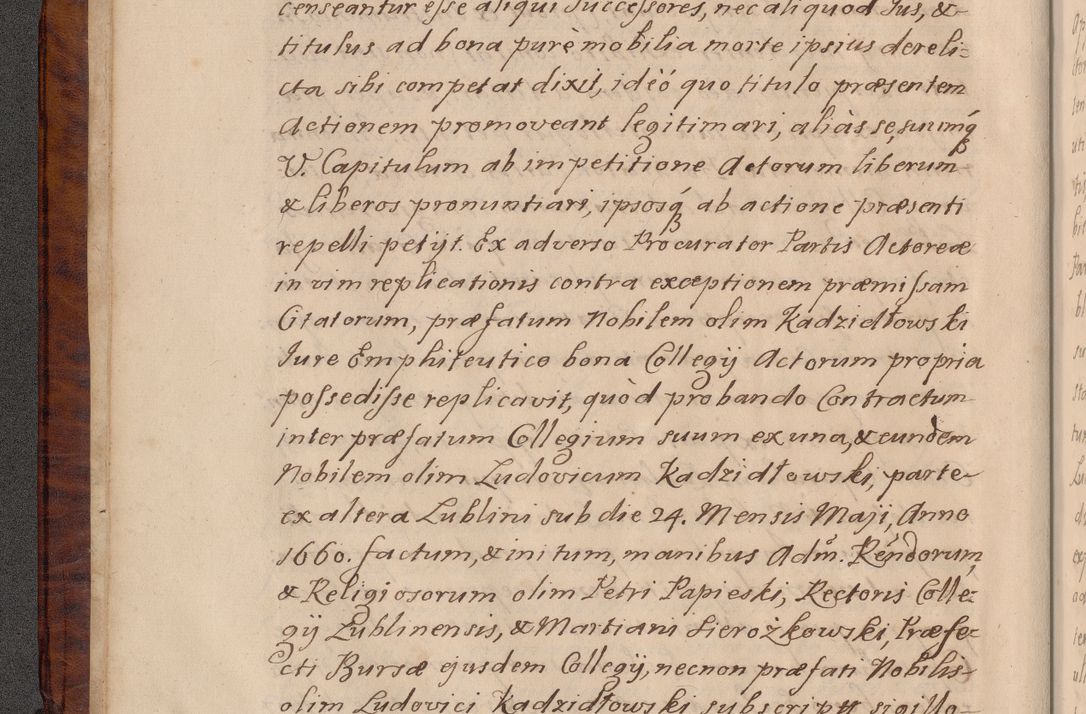 censeantur esse aliqui Successores, nec aliquod Jus, &
titulus ad bona purè mobilia morte ipsius dereli=
cta sibi competat dixit, idèó quo titulo præsentem
Actionem promoveant legitimari, aliàs se, suumq́
V. Capitulum ab impetitione Actorum liberum
& liberos pronuntiari, ipsosq́ ab actione præsenti
repelli petijt. Ex adverso Procurator Partis Actoreæ
in vim replicationis contra exceptionem præmissam
Citatorum, præfatum Nobilem olim Kadzidłowski
Jure Emphiteutico bona Collegij Actorum propria
possedisse replicavit, quòd probando Contractum
inter præfatum Collegium suum ex una, & eundem
Nobilem olim Ludovicum Kadzidłowski, parte
ex altera Lublini sub die 24. Mensis Maji, Anno
1660. factum, & initum, manibus Adm̃. Reńdorum,
& Religiosorum olim Petri Papieski, Rectoris Colle=
gij Lublinensis, & Martiani Sierożkowski, Præfe=
cti Bursæ ejusdem Collegij, necnon præfati Nobilis
olim Ludovici Kadzidłowski subscriptū sigillo